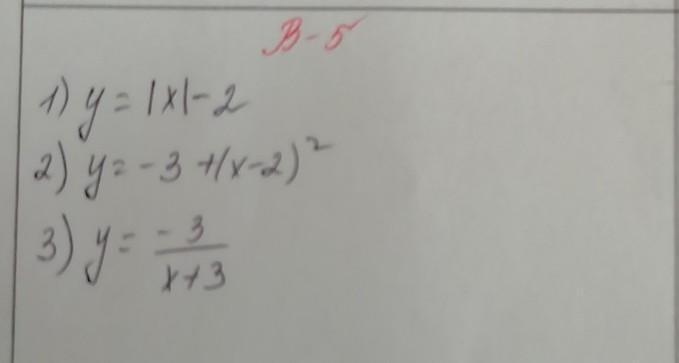 В-5
1) y = |x| - 2
2) y = -3 + (x-2)²
3) y = -3/(x+3)